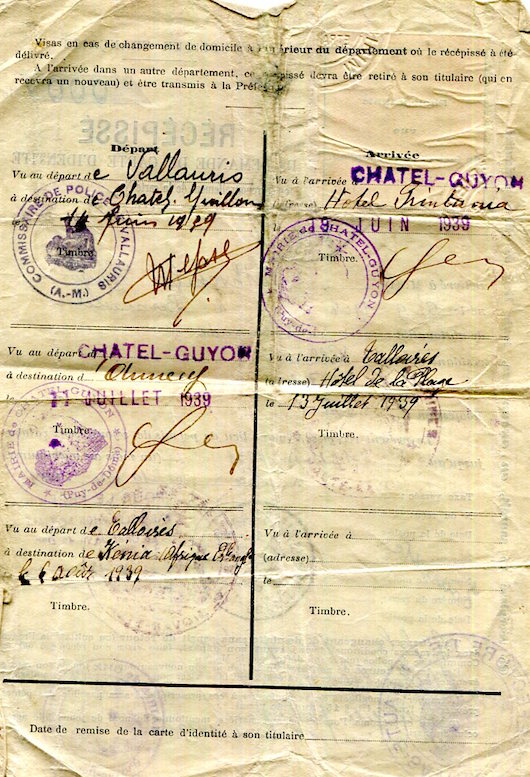 Visas en cas de changement de domicile à l'extérieur du département où le récépissé a été
délivré.
A l'arrivée dans un autre département, ce récépissé devra être retiré à son titulaire (qui en
recevra un nouveau) et être transmis à la Préfecture
Départ
Vu au départ de Vallauris
à destination de Chatel-Guillon
le 14 Juin 1939
Timbre.
COMMISSAIRE DE POLICE VALLAURIS
(A.-M.)
Arrivée
Vu à l'arrivée à CHATEL-GUYON
(adresse) Hotel
le 9 JUIN 1939
Timbre.
MAIRIE de CHATEL-GUYON
Vu au départ d CHATEL-GUYON
à destination d'Annecy
le 11 JUILLET 1939
Timbre.
MAIRIE de CHATEL-GUYON
(Puy-de-Dôme)
Vu à l'arrivée à Talloires
(adresse) Hôtel de la Plage
le 13 Juillet 1939
Timbre.
Vu au départ de Talloires
à destination de Kénia Afrique Est angl
le 6 Août 1939
Timbre.
Vu à l'arrivée à
(adresse)
le
Timbre.
Date de remise de la carte d'identité à son titulaire